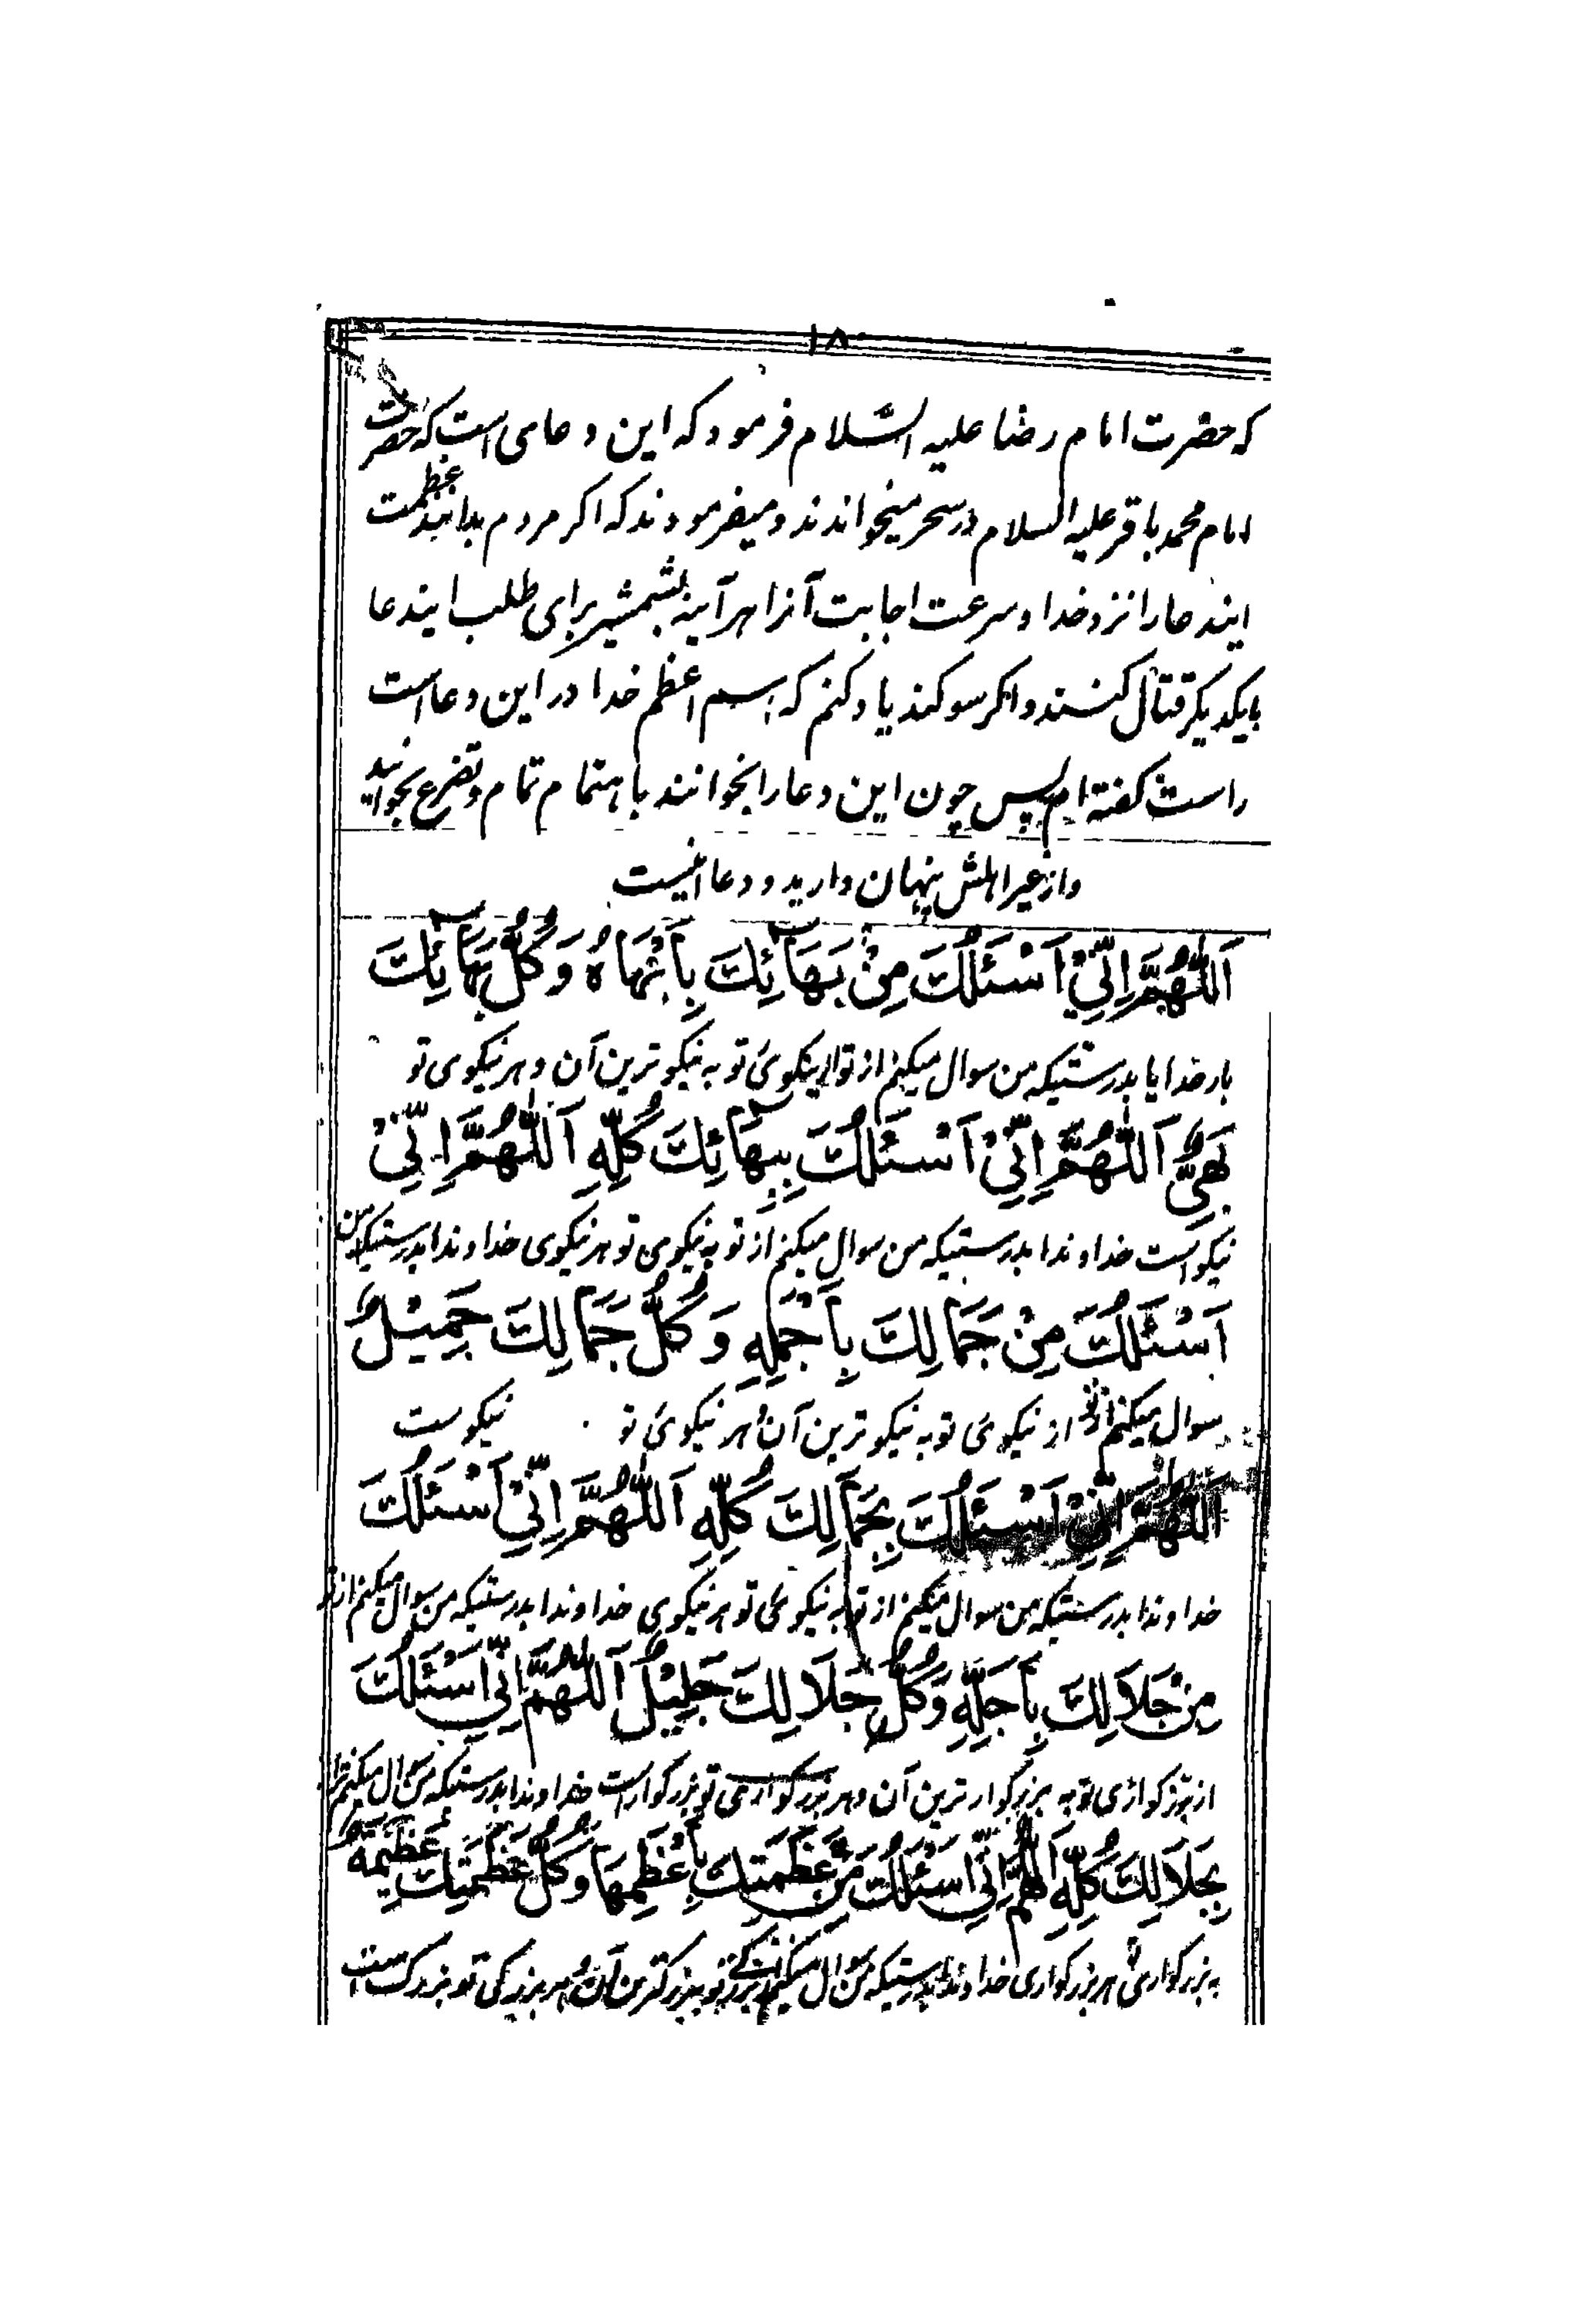 ۱۸۰
که حضرت امام رضا علیه السّلام فرمود که این دعای است که حضرت
امام محمد باقر علیه السلام در سحر میخواندند و میفرمودند که اکر مردم بدانند عظمت
ایندعا را نزد خدا و سرعت اجابت آنرا هر آینه بشمشیر برای طلب ایندعا
بایکدیکر قتال کنند و اکر سوکند یاد کنم که اسم اعظم خدا در این دعا است
راست کفته ام پس چون این دعا را بخوانند با هتمام تمام و تضرع بخوانید
و از غیر اهلش پنهان دارید و دعا اینست
اَللّٰهُمَّ اِنِّیْ اَسْئَلُكَ مِنْ بَهَائِكَ بِاَبْهَاهُ وَ كُلُّ بَهَائِكَ
بار خدایا بدرستیکه من سوال میکنم از تو از نیکوئ تو به نیکو ترین آن و هر نیکوی تو
بَهِیٌّ اَللّٰهُمَّ اِنِّیْ اَسْئَلُكَ بِبَهَائِكَ كُلِّهِ اَللّٰهُمَّ اِنِّیْ
نیکو است خداوندا بدرستیکه من سوال میکنم از تو به نیکوی تو هر نیکوی خداوندا بدرستیکه من
اَسْئَلُكَ مِنْ جَمَالِكَ بِاَجْمَلِهِ وَ كُلُّ جَمَالِكَ جَمِیْلٌ
سوال میکنم از تو از نیکوئ تو به نیکو ترین آن و هر نیکوئ تو نیکوست
اَللّٰهُمَّ اِنِّیْ اَسْئَلُكَ بِجَمَالِكَ كُلِّهِ اَللّٰهُمَّ اِنِّیْ اَسْئَلُكَ
خداوندا بدرستیکه من سوال میکنم از تو به نیکوئ تو هر نیکوی خداوندا بدرستیکه من سوال میکنم از تو
مِنْ جَلَالِكَ بِاَجَلِّهِ وَ كُلُّ جَلَالِكَ جَلِیْلٌ اَللّٰهُمَّ اِنِّی اَسْئَلُكَ
از بزرکواری تو به بزرکوار ترین آن و هر بزرکواری تو بزرکوار است خداوندا بدرستیکه من سوال میکنم
بِجَلَالِكَ كُلِّهِ اَللّٰهُمَّ اِنِّی اَسْئَلُكَ مِنْ عَظَمَتِكَ بِاَعْظَمِهَا وَ كُلُّ عَظَمَتِكَ عَظِیْمَةٌ
به بزرکواری هر بزرکواری خداوندا بدرستیکه من سوال میکنم تو ببزرکترین آن و هر بزرکی تو بزرک است